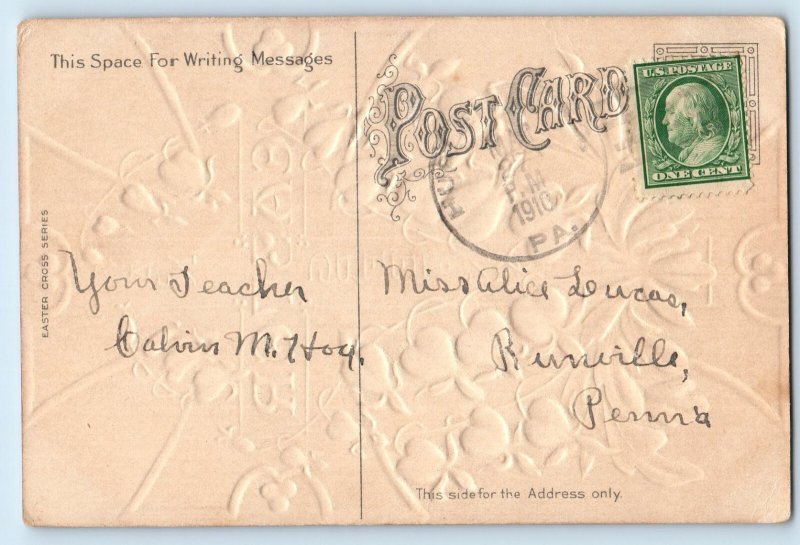 This Space For Writing Messages
POST CARD
U.S. POSTAGE
ONE CENT
1910
PA.
EASTER CROSS SERIES
Your Teacher
Calvin M. Hoy.
Miss Alice Lucas,
Runville,
Penna
This side for the Address only.